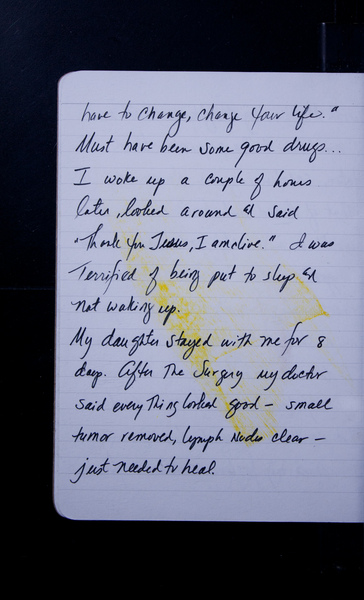 have to change, change your life."
Must have been some good drugs...
I woke up a couple of hours
later, looked around and said
"Thank you Jesus, I am alive." I was
Terrified of being put to sleep and
not waking up.
My daughter stayed with me for 8
days. After The Surgery my doctor
said everything looked good – small
tumor removed, lymph nodes clear –
just needed to heal.